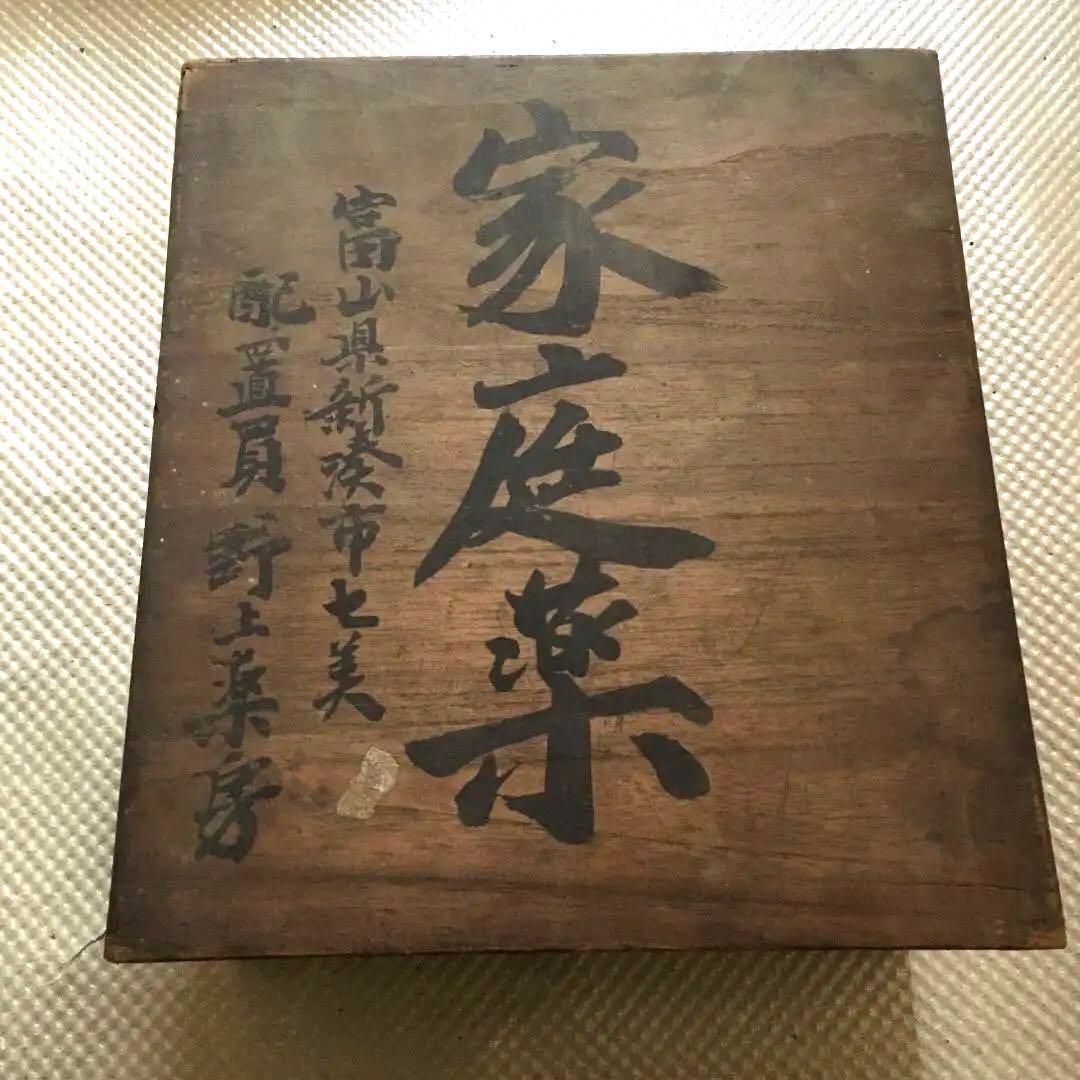 家庭薬
富山県新湊市七美
配置員野上薬房